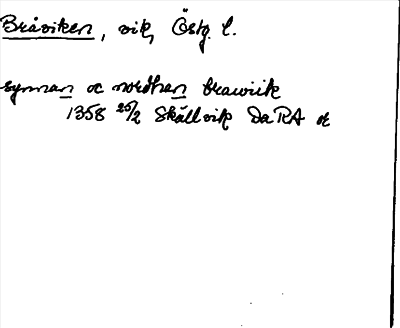 Bråviken, vik, Östg. l.
synnan oc nordhan brawiik
1358 25/2 Skällvik DaRA or